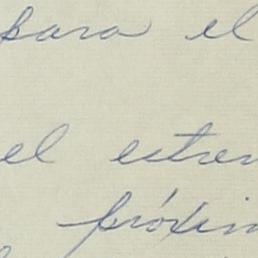 para el
el estren
próxim